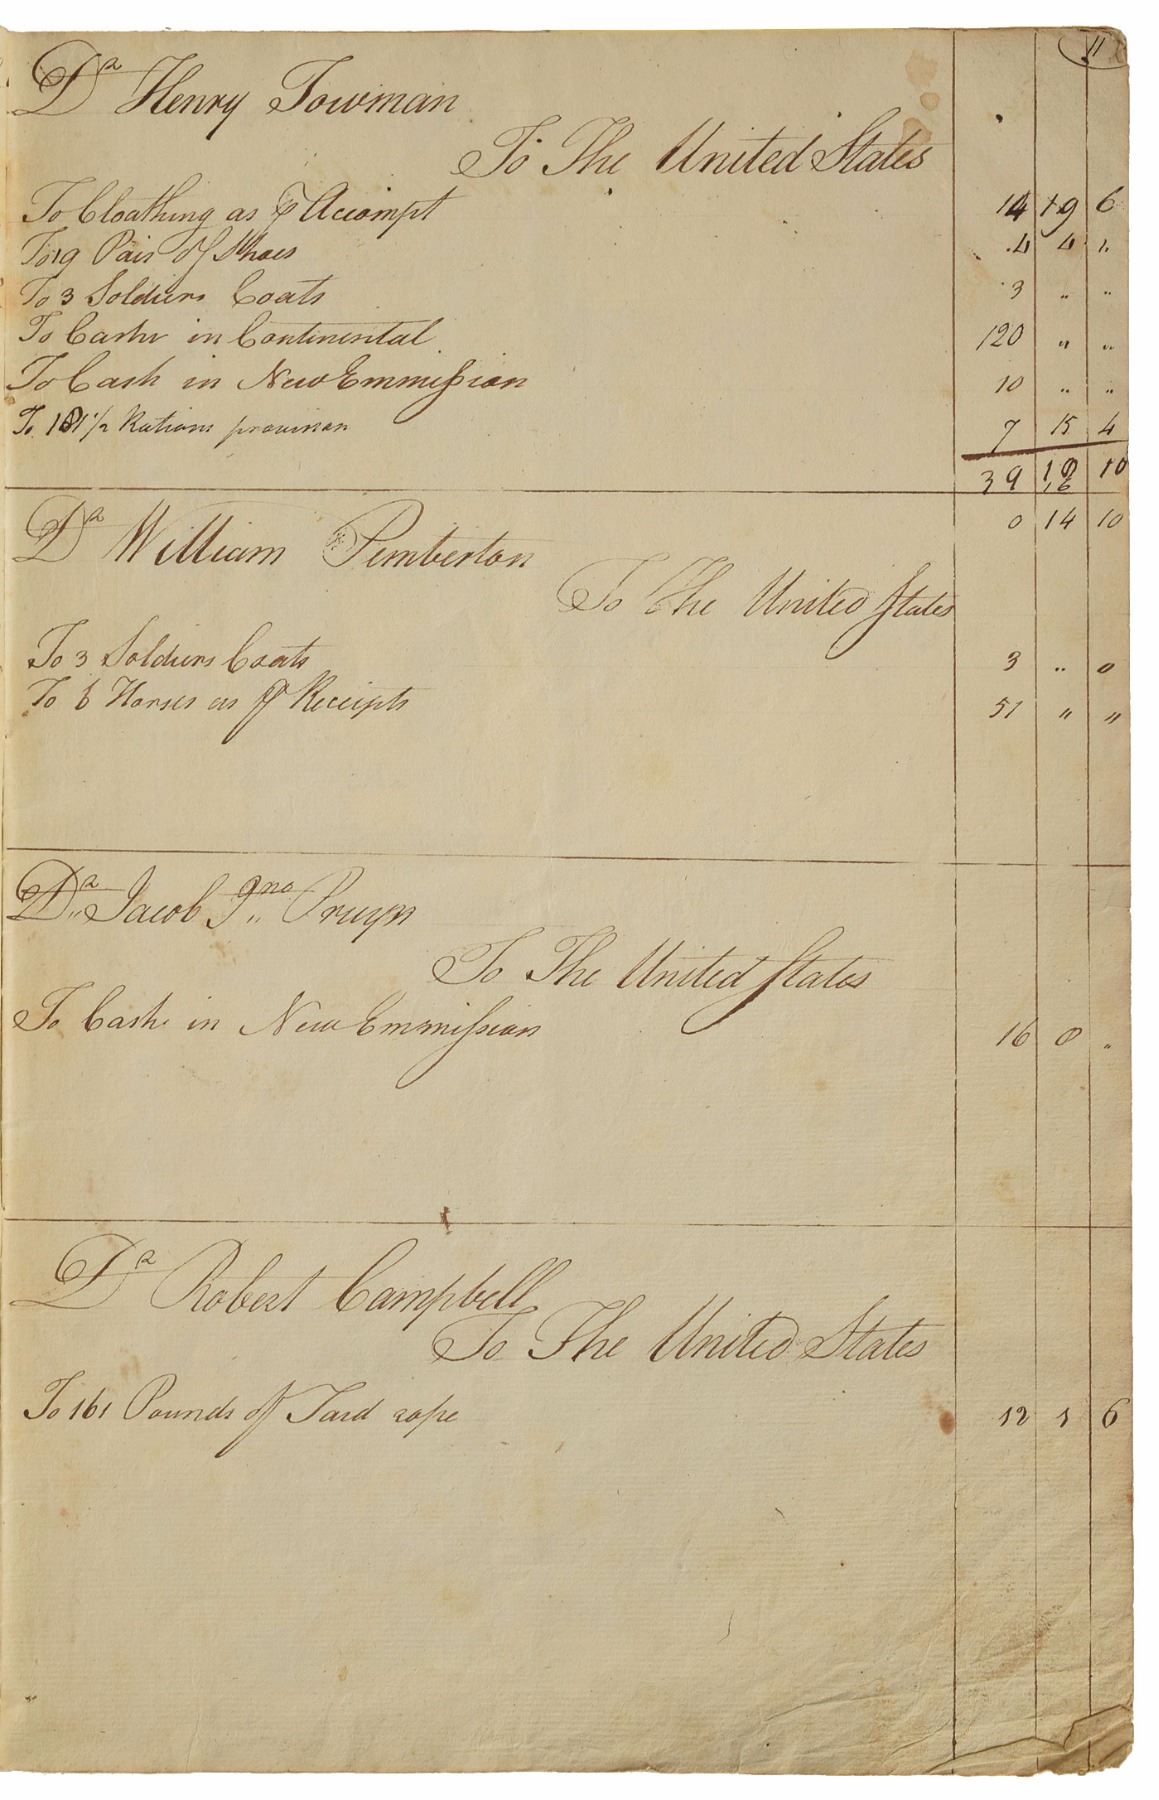 11
Dr Henry Towman
To The United States
To Cloathing as ⅌ Accompt 14 19 6
To 19 Pair of Shoes 4 4 "
To 3 Soldiers Coats 3 " "
To Cash in Continental 120 " "
To Cash in New Emmission 10 " "
To 181 1/2 Rations provision 7 15 4
39 10
0 14 10
Dr William Pemberton
To The United States
To 3 Soldiers Coats 3 " 0
To 6 Horses as ⅌ Receipts 51 " "
Dr Jacob Jno Pruyn
To The United States
To Cash in New Emmission 16 0 "
Dr Robert Campbell
To The United States
To 161 Pounds of Tard rope 12 1 6